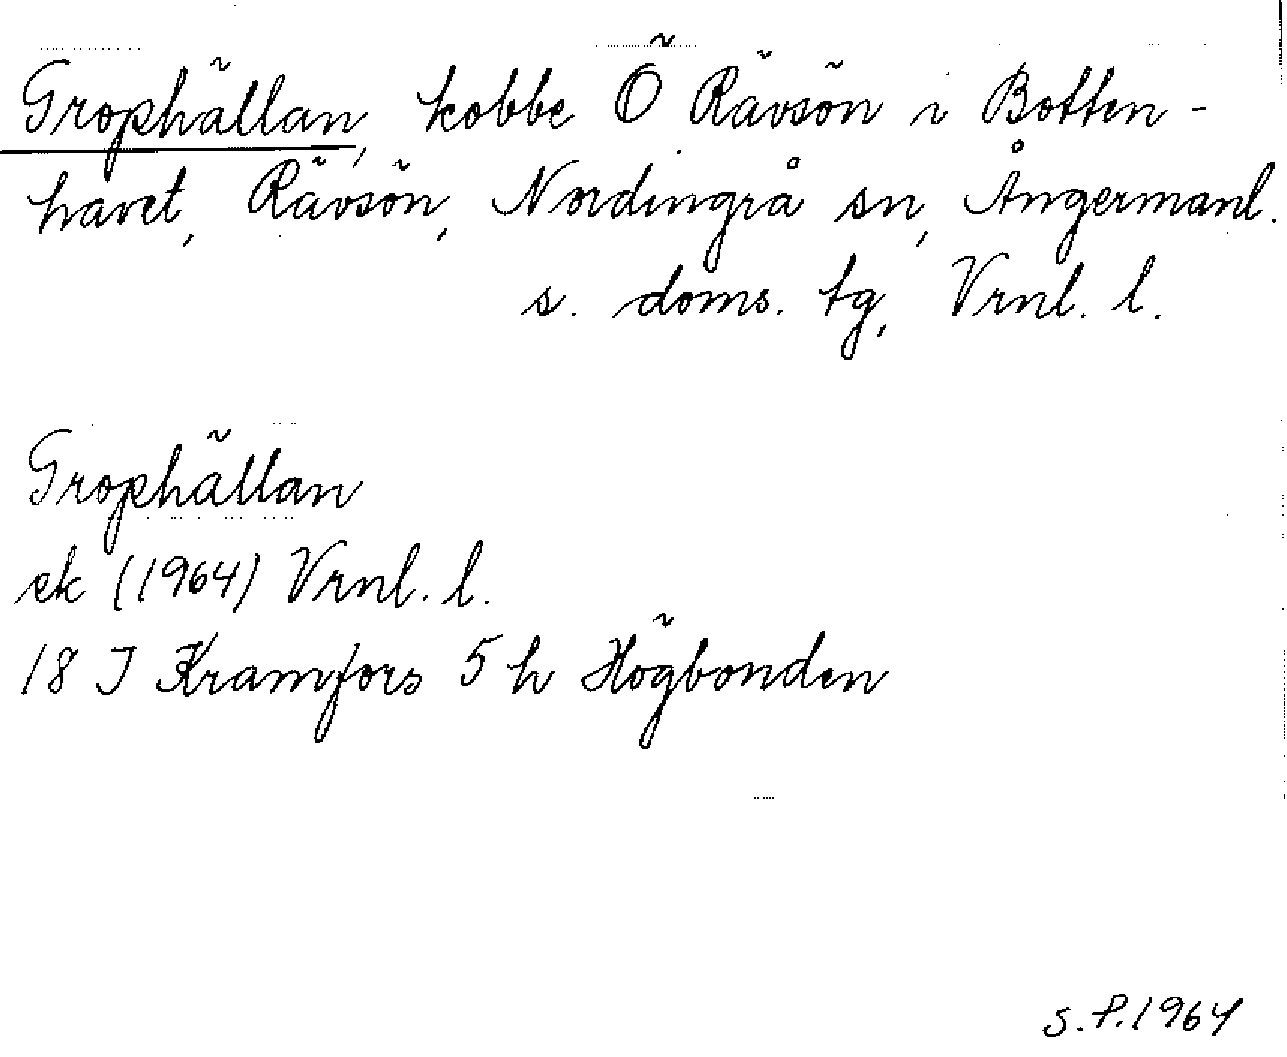 Grophällan, kobbe Ö Rävsön i Botten-
havet, Rävsön, Nordingrå sn, Ångermanl.
s. doms. tg, Vrnl. l.
Grophällan
ek (1964) Vrnl. l.
18 J Kramfors 5 h Högbonden
S.P.1964